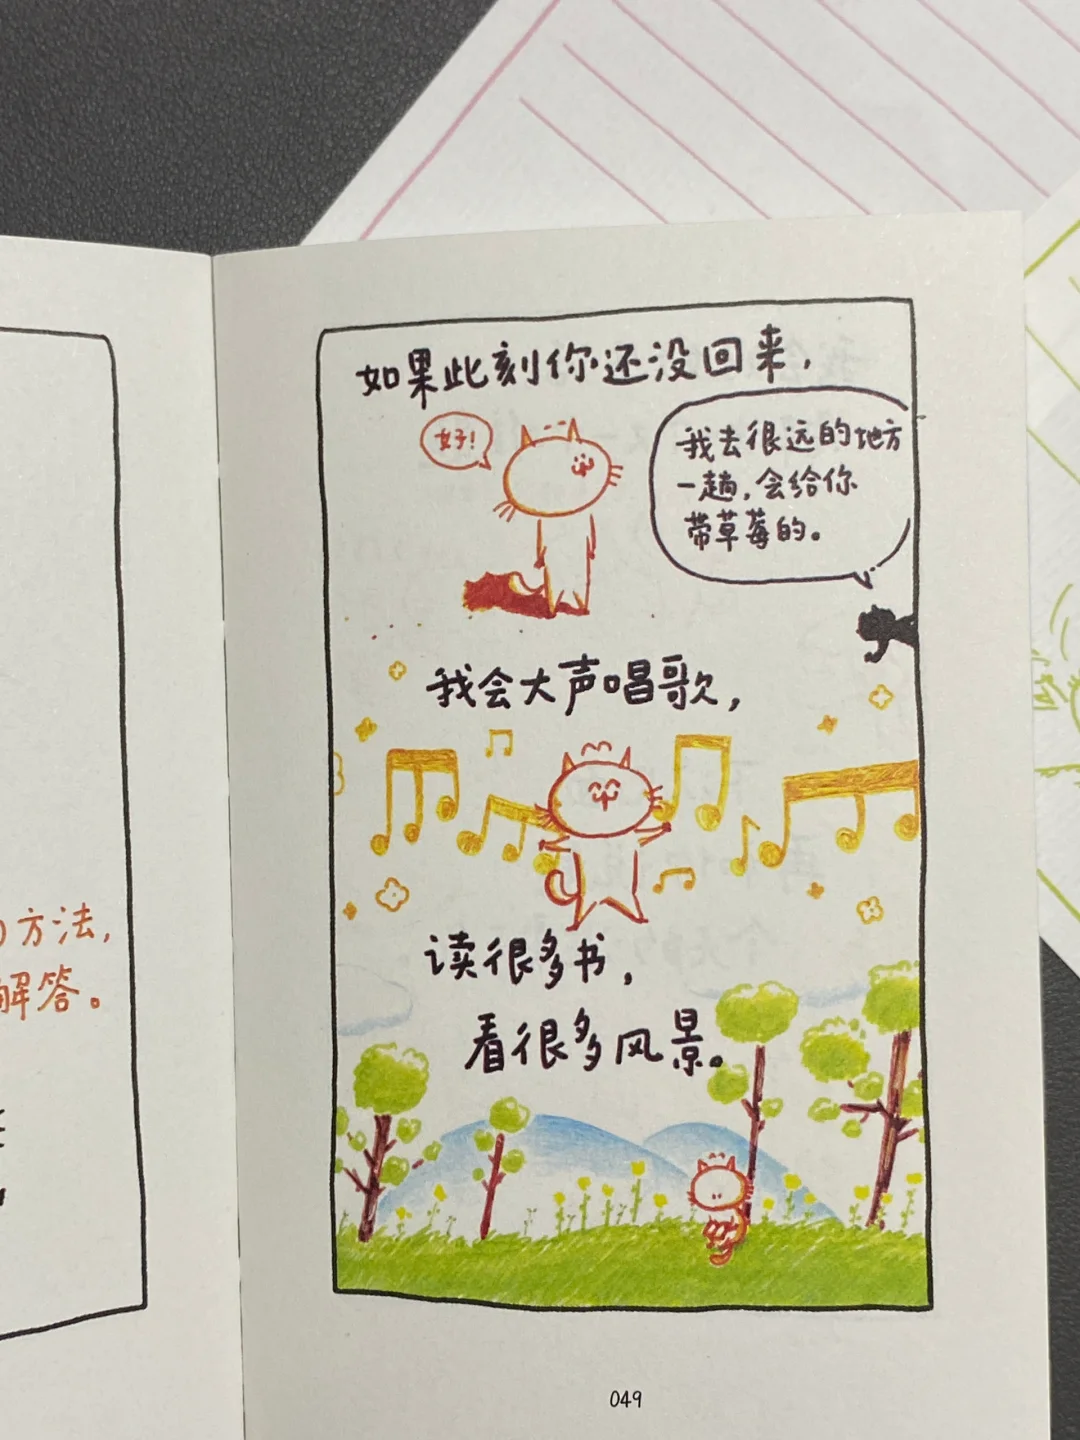 方法,
解答。
如果此刻你还没回来,
好!
我去很远的地方
一趟,会给你
带草莓的。
我会大声唱歌,
读很多书,
看很多风景。
049